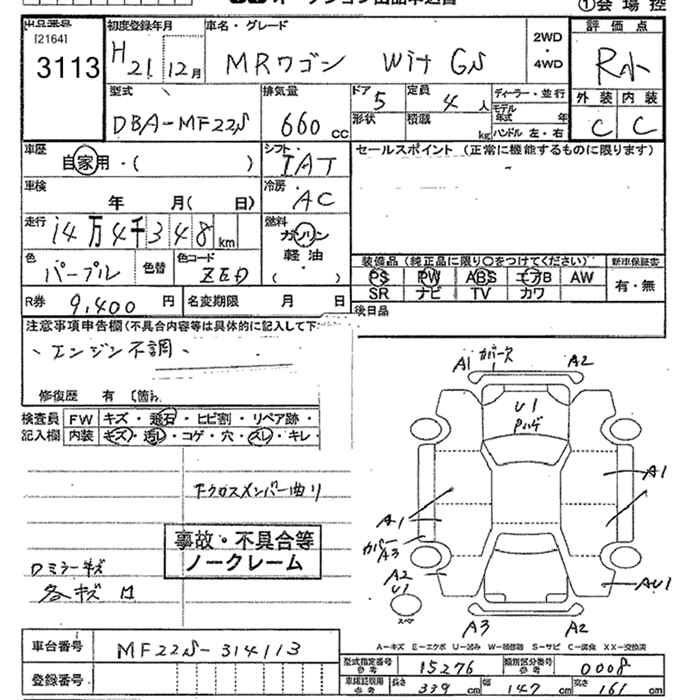 ①会場控
出品番号 初度登録年月 車名・グレード 評価点
[2164]
3113 H21 12月 MRワゴン Wit GS 2WD ・ 4WD R小
型式 排気量 ドア 5 定員 4人 ディーラー・並行 外装 内装
DBA-MF22S 660cc 形状 積載 kg モデル年式 年 ハンドル 左・右 C C
車歴 自家用・( ) シフト IAT セールスポイント (正常に機能するものに限ります)
車検 年 月( 日) 冷房 AC
走行 14万4千348km 燃料 ガソリン 軽油 ( )
色 パープル 色替 色コード ZED
装備品 (純正品に限り○をつけてください) 新車保証書
PS PW ABS エアB AW 有・無
SR ナビ TV カワ
R券 9,400円 名変期限 月 日 後日品
注意事項申告欄(不具合内容等は具体的に記入して下
エンジン不調
修復歴 有
検査員 FW キズ・飛石・ヒビ割・リペア跡・
記入欄 内装 キズ・汚レ・コゲ・穴・スレ・キレ・
A1 カバース A2
U1
A1
A1
カバー A3
A2
U1
AU1
A3 A2
下クロスメンバー曲り
事故・不具合等
ノークレーム
Dミラーキズ
各キズ
A-キズ E-エクボ U-凹み W-補修跡 S-サビ C-腐食 XX-交換済
車台番号 MF22S-314113
型式指定番号 参考 15276 類別区分番号 参考 0008
登録番号
車検証取用 参考 長さ 339cm 幅 147cm 高さ 161cm